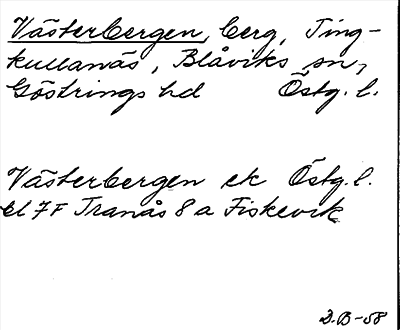 Västerbergen, berg, Ting-
kullanäs, Blåviks sn,
Göstrings hd Östg. l.
Västerbergen ek Östg. l.
bl 7F Tranås 8 a Fiskevik
D.B-58